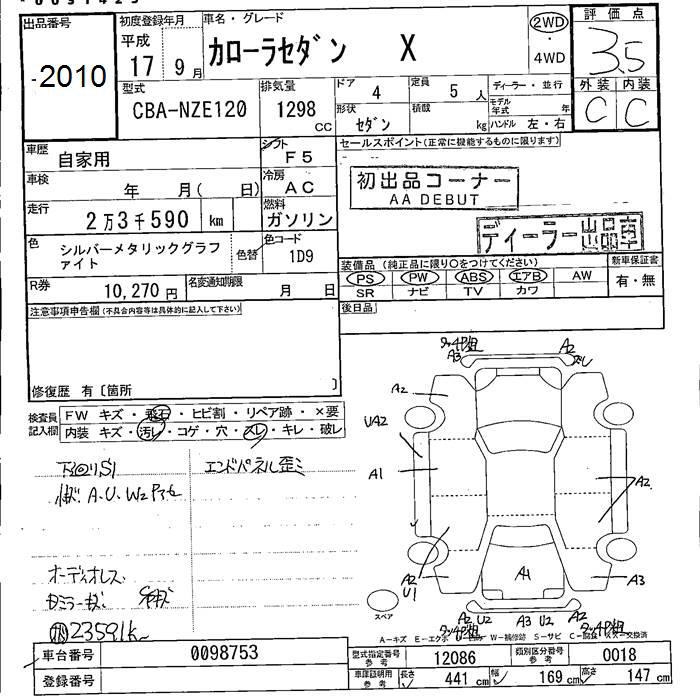 出品番号
-2010
初度登録年月
平成
17 9月
車名・グレード
カローラセダン X
2WD
・
4WD
評価点
3.5
外装 内装
C C
型式
CBA-NZE120
排気量
1298 cc
ドア 4
定員 5 人
ディーラー・並行
形状 セダン
積載 kg
モデル年式 年
ハンドル 左・右
車歴
自家用
シフト
F5
セールスポイント(正常に機能するものに限ります)
車検
年 月( 日)
冷房
AC
初出品コーナー
AA DEBUT
走行
2万3千590 km
燃料
ガソリン
ディーラー出品車
色
シルバーメタリックグラファイト
色替
色コード
1D9
装備品(純正品に限り○をつけてください)
新車保証書
PS PW ABS エアB AW
SR ナビ TV カワ
有・無
R券
10,270円
名変通知期限
月 日
後日品
注意事項申告欄(不具合内容等は具体的に記入して下さい)
修復歴 有〔箇所 〕
検査員記入欄
FW キズ・飛石・ヒビ割・リペア跡・×要
内装 キズ・汚レ・コゲ・穴・スレ・キレ・破レ
エンドパネル歪ミ
オーディオレス
23591k
A3
A2
スレ
A2
UA2
A1
A2
A2
U1
A1
A3
スペア
A2 U2 A3 U2 A2
A-キズ E-エクボ W-補修跡 S-サビ
車台番号 0098753
型式指定番号
参考
12086
類別区分番号
参考
0018
登録番号
車庫証明用
参考
長さ 441 cm 幅 169 cm 高さ 147 cm